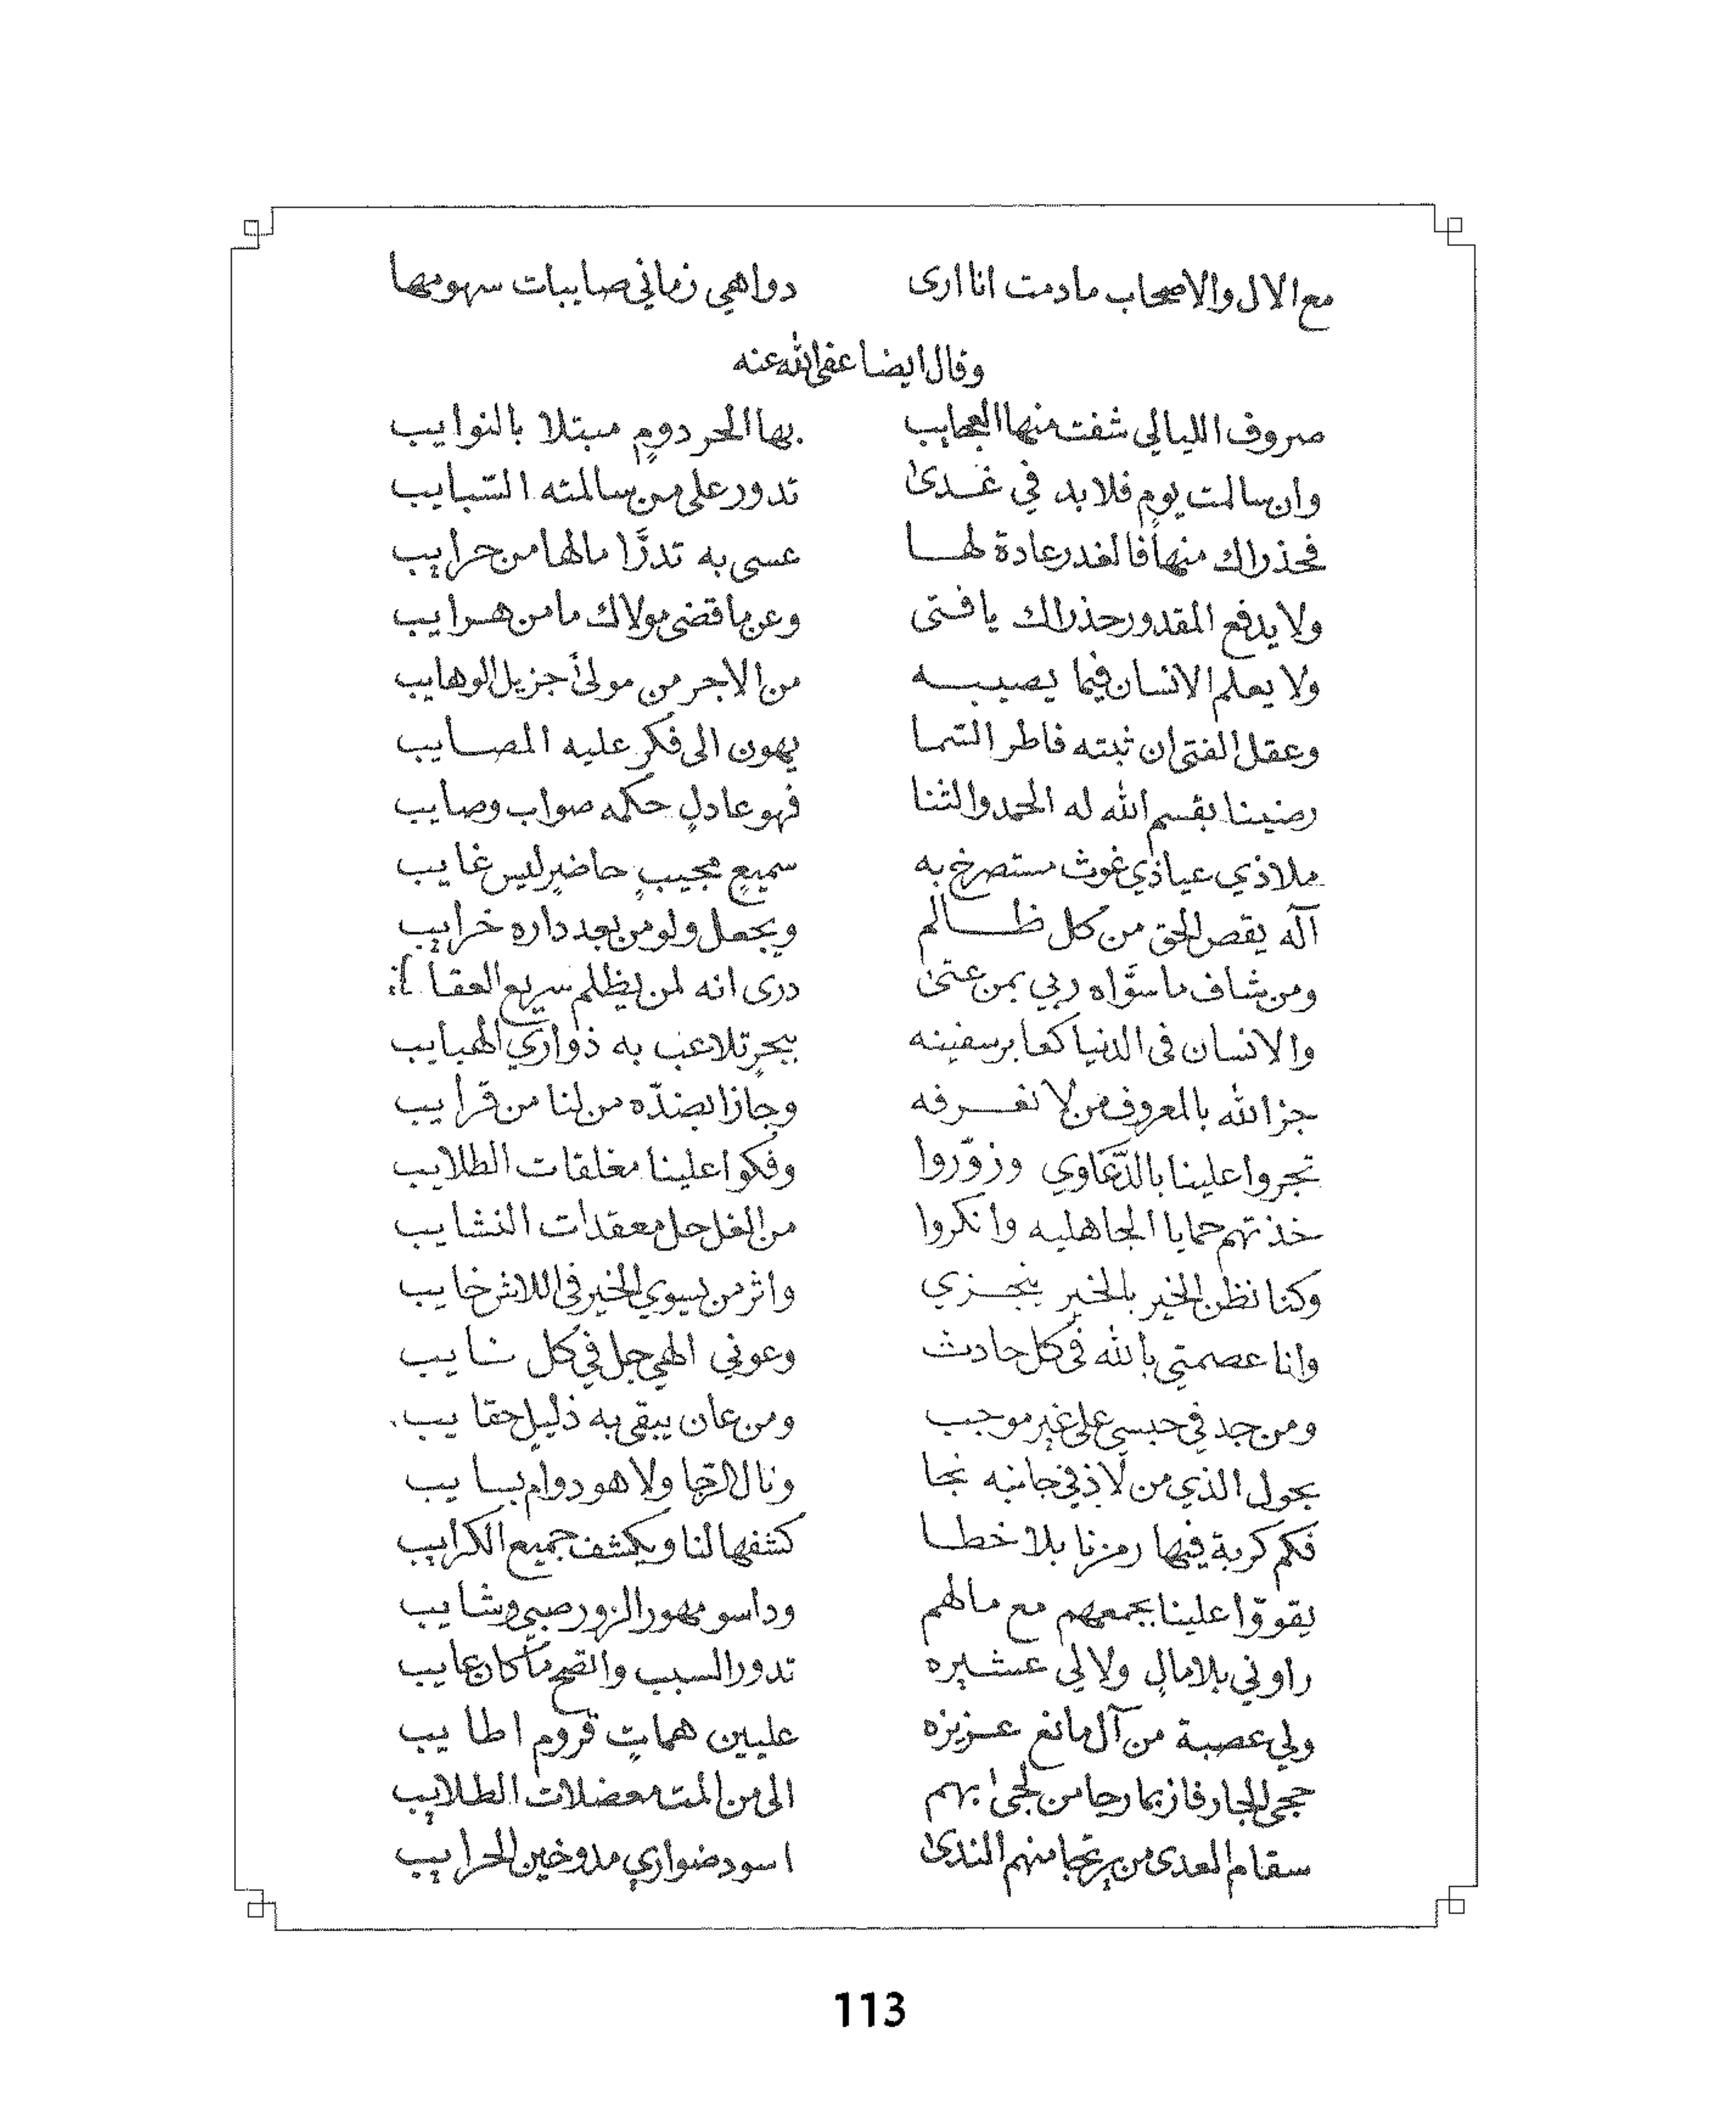 مع الال والاصحاب مادمت انا ارى دواهي زماني صايبات سهومها
وقال ايضا عفى الله عنه
صروف الليالي شفت منها العجايب بها الحر دومٍ مبتلا بالنوايب
وان سالمت يومٍ فلابد في غدىً تدور على من سالمته السّبايب
فحذراك منها فالغدر عادة لها عسى به تدرَّا مالها من حرايب
ولا يدفع المقدور حذراك يا فتى وعن ما قضى مولاك ما من هرايب
ولا يعلم الانسان فيما يصيبه من الاجر من مولىً جزيل الوهايب
وعقل الفتى ان ثبته فاطر السّما يهون الى فكر عليه المصايب
رضينا بقسم الله له الحمد والثنا فهو عادلٍ حكمه صواب وصايب
ملاذي عياذي غوث مستصرخ به سميعٍ مجيبٍ حاضرٍ ليس غايب
آله يقص الحق من كل ظالم ويجعل ولو من بعد داره خرايب
ومن شاف ما سوَّاه ربي بمن عتىٰ درى انه لمن يظلم سريع العقاب
والانسان في الدنيا كعابر سفينه ببحرٍ تلاعب به ذواري الهبايب
جزا الله بالمعروف من لا نعرفه وجازا بضدّه من لنا من قرايب
تجروا علينا بالدّعاوي وزوّروا وفكوا علينا مغلقات الطلايب
خذتهم حمايا الجاهليه وانكروا من الغل حل معقدات النشايب
وكنا نظن الخير بالخير ينجزي واثر من يسوي الخير في اللاش خايب
وانا عصمتي بالله في كل حادث وعوني الهي جل في كل نايب
ومن جد في حبسي على غير موجب ومن عان يبقى به ذليلٍ حقايب
بحول الذي من لاذ في جانبه نجا ونال الرّجا ولا هو دوام بسايب
فكم كربة فيها رمزنا بلا خطا كشفها لنا ويكشف جميع الكرايب
يقووّا علينا بجمعهم مع مالهم وداسو مهور الزور صبي وشايب
راوني بلا مالٍ ولا لي عشيره تدور السبب واتضح ما كان عايب
ولي عصبة من آل مانع عزيزه عليين هماتٍ قروم اطايب
حجى للجار فاز بما رجا من لجىٰ بهم الى من المت معضلات الطلايب
سقام العدى من يرتجا منهم الندىٰ اسود ضواري مدوخين الحرايب
113